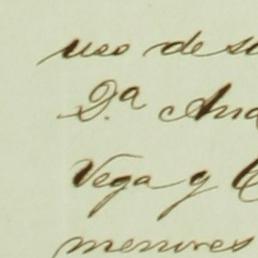 uso de su
D.ª And
Vega y C
menores